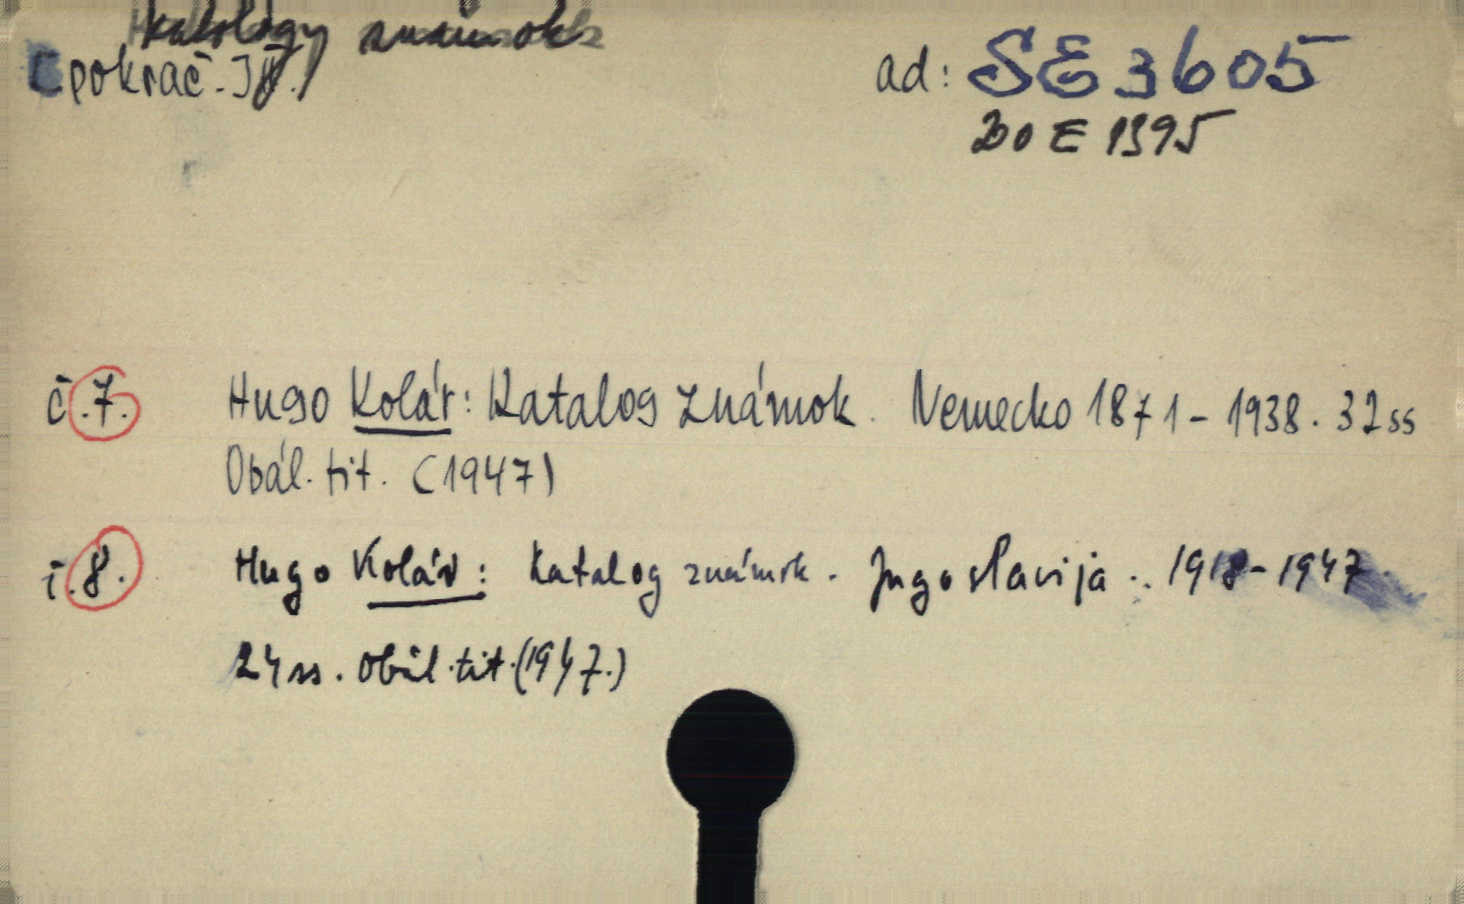 Katalógy známok
(pokrač. IV.)
ad: SE 3605
20 E 1395
č. 7. Hugo Kolár: Katalog známok. Nemecko 1871 - 1938. 32 ss
Obál. tit. (1947)
č. 8. Hugo Kolár: Katalog známok. Jugoslavija. 1918-1947.
24 ss. Obál. tit. (1947.)